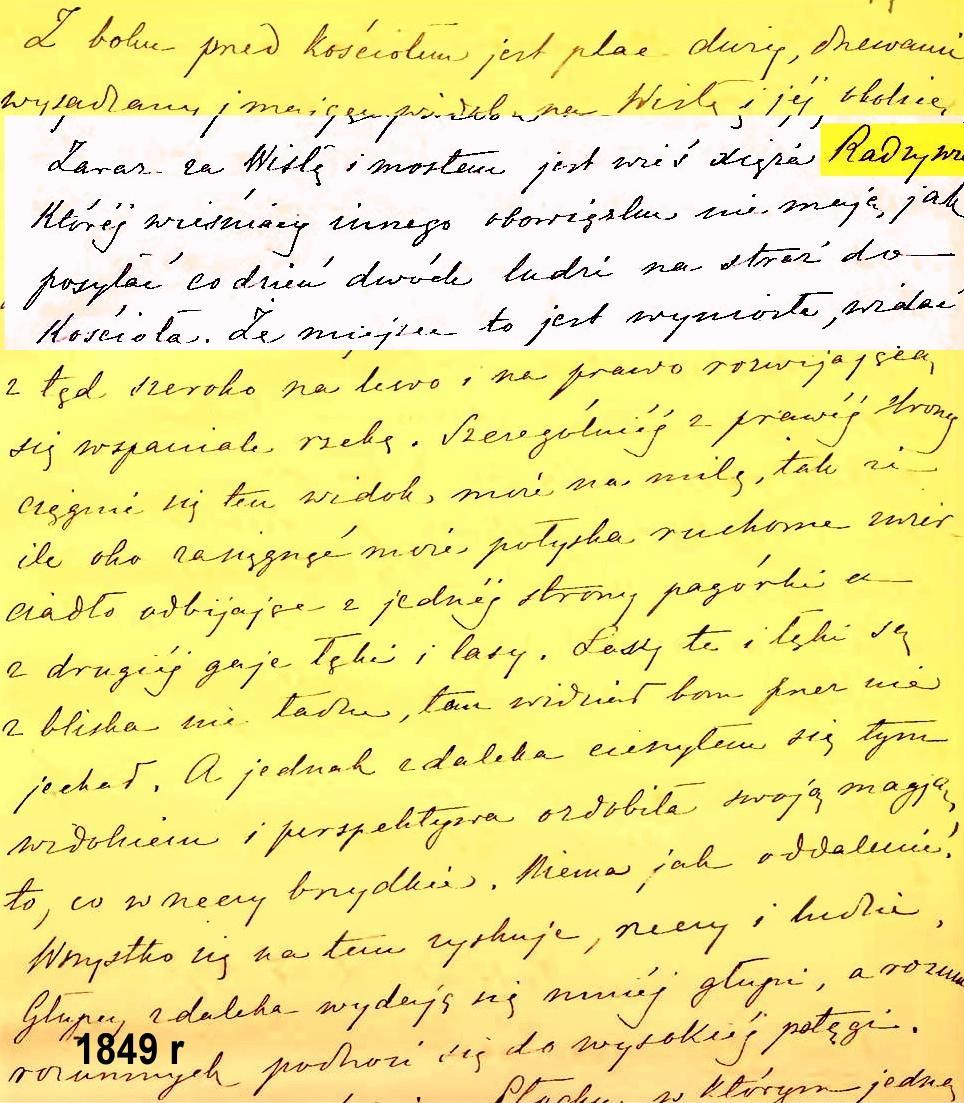 Z boku przed Kościołem jest plac duży, drzewami
wysadzany j mający widok na Wisłę i jéj okolice,
Zaraz za Wisłą i mostem jest wieś xięża Radzywi
Któréj wieśniacy innego obowiązku nie mają, jak
posyłać codzień dwóch ludzi na straż do
Kościoła. Że miejsce to jest wyniosłe, widać
z tąd szeroko na lewo i na prawo rozwijającą
się wspaniale rzekę. Szczególniéj z prawéj strony
ciągnie się ten widok, może na milę, tak iż
ile oko zasięgnąć może, połyska ruchome zwier
ciadło odbijające z jednéj strony pagórki a
z drugiéj gaje łąki i lasy. Lasy te i łąki są
z bliska nie ładne, tam widział bom przez nie
jechał. A jednak zdaleka cieszyłem się tym
widokiem i perspektywa ozdobiła swoją magją,
to, co w rzeczy brzydkie. Niema jak oddalenie!
Wszystko się na tem zyskuje, rzeczy i ludzie,
Głupcy zdaleka wydają się mniéj głupi, a rozum
rozumnych podnosi się do wysokiéj potęgi.
w którym jedną
1849 r